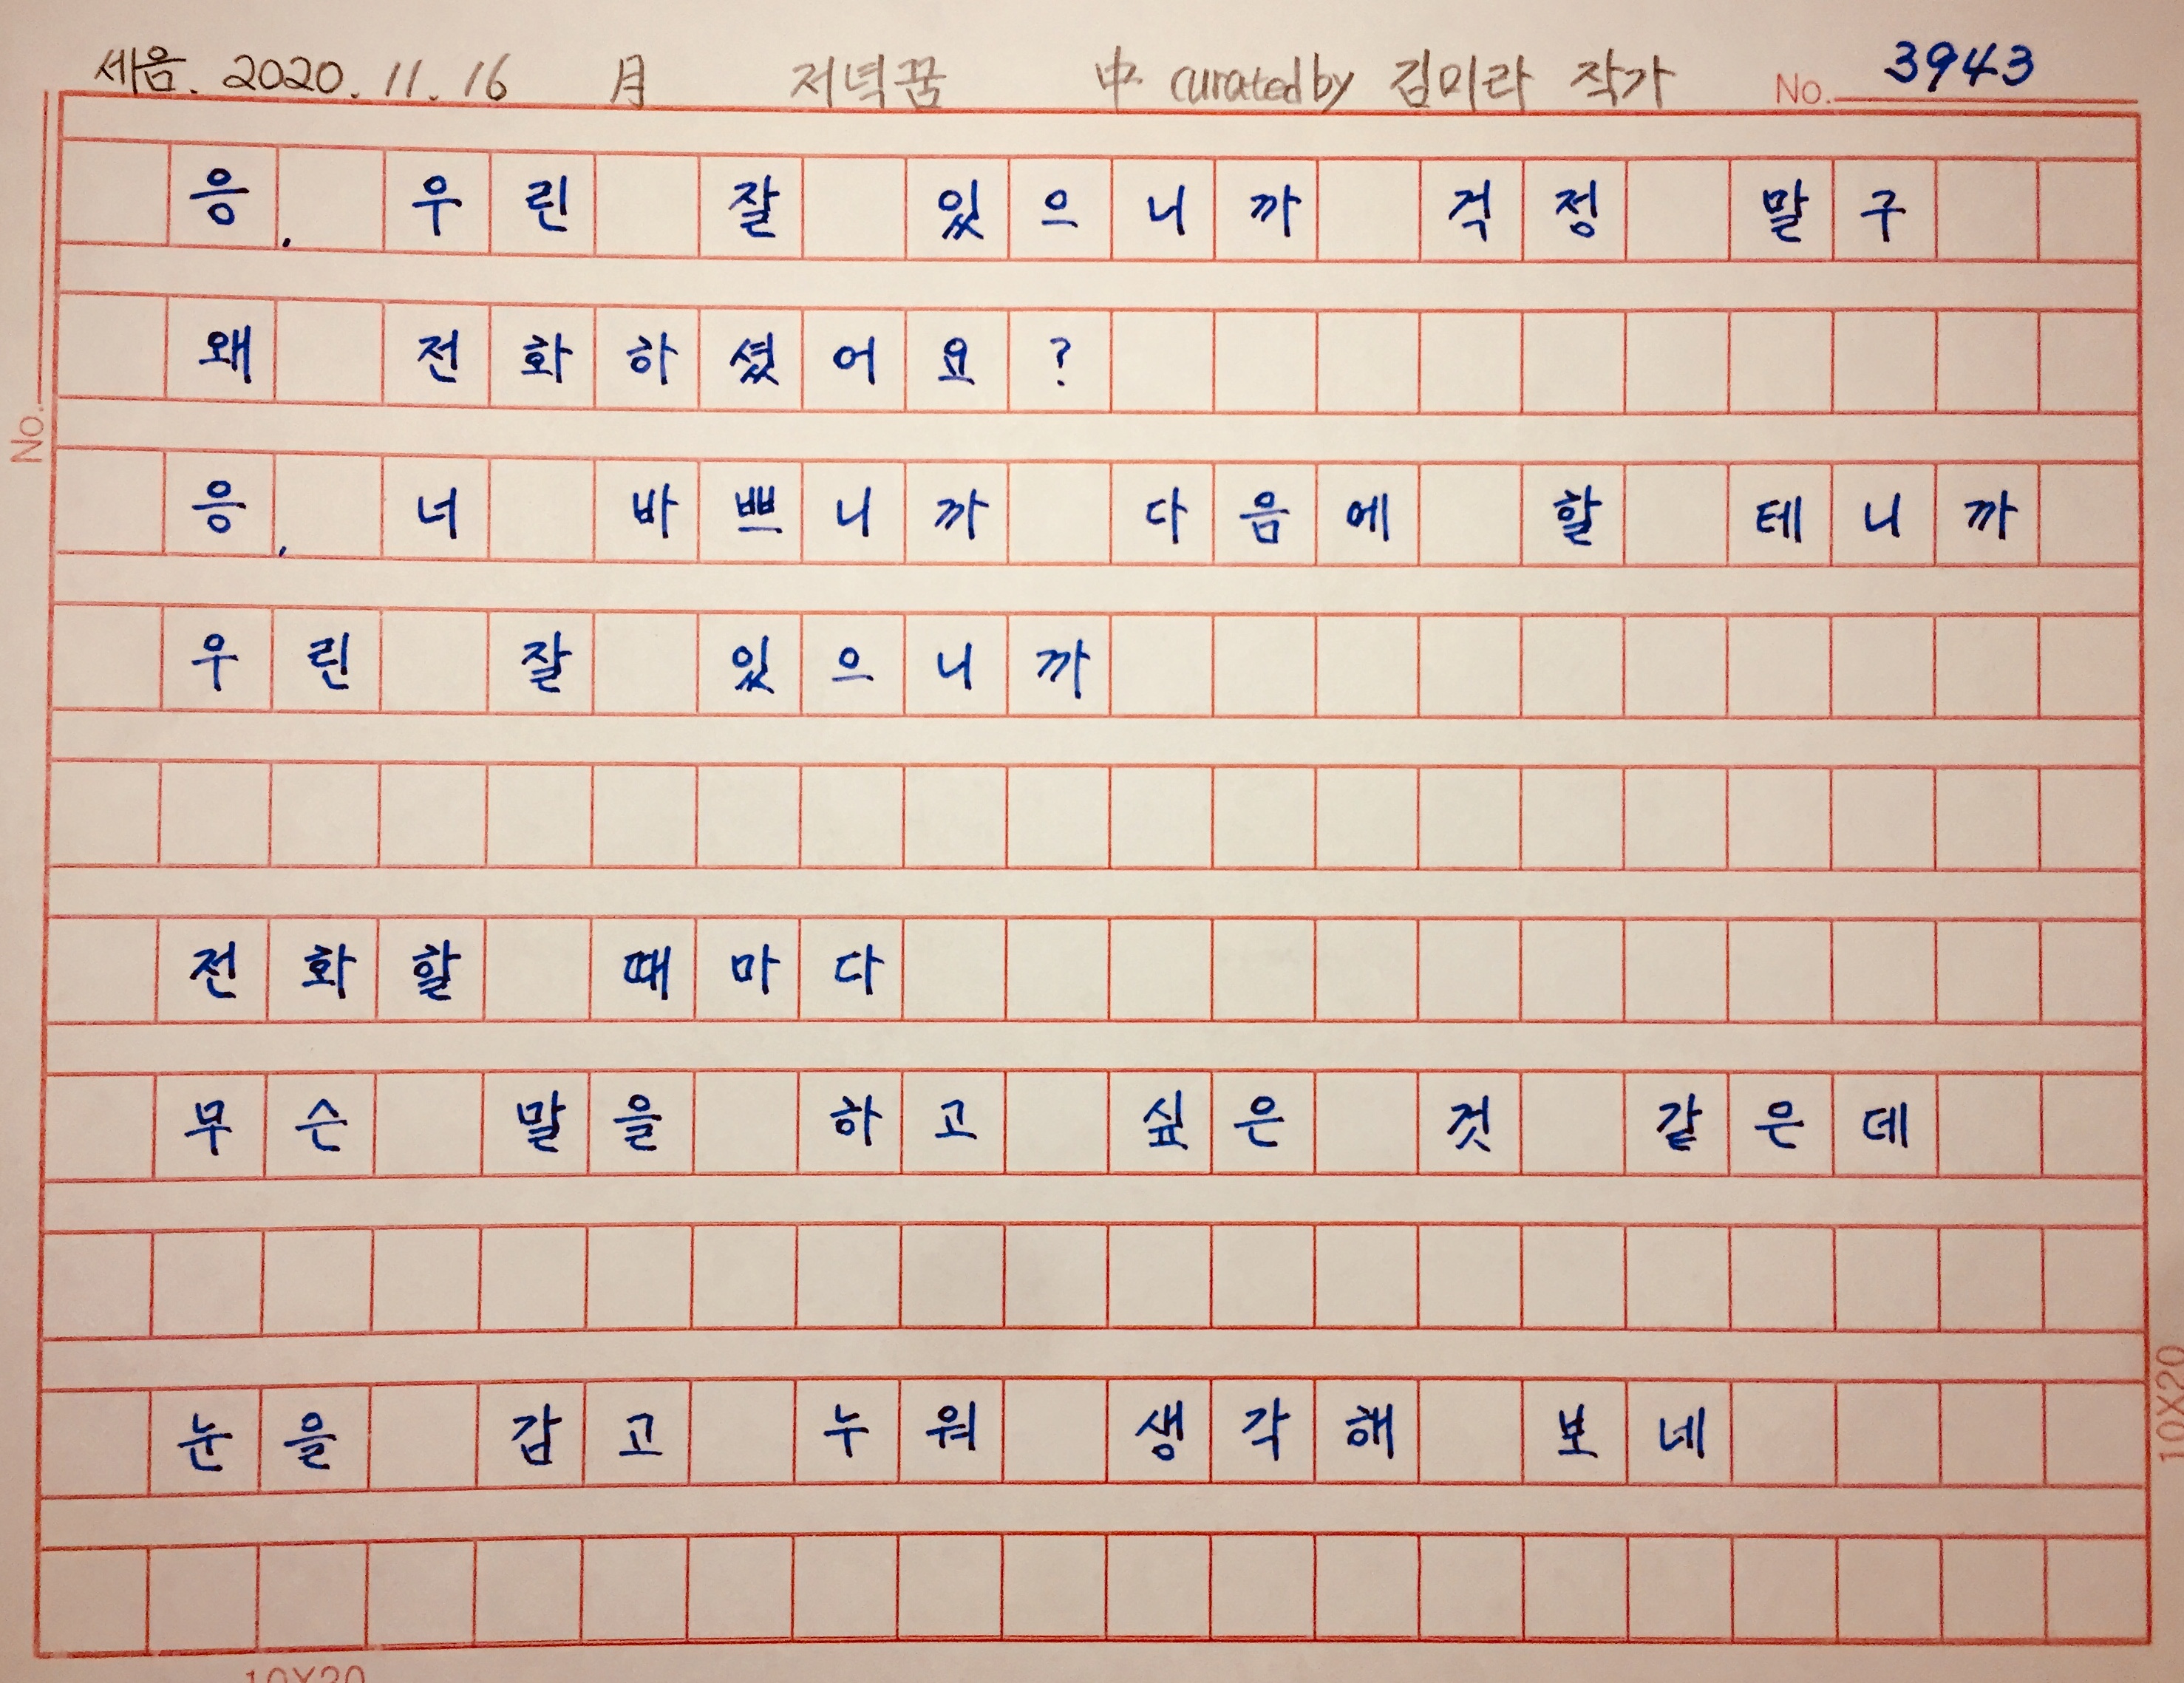 세음. 2020. 11. 16 月 저녁꿈 中 curated by 김미라 작가 No. 3943
응. 우린 잘 있으니까 걱정 말구
왜 전화하셨어요?
No.
응. 너 바쁘니까 다음에 할 테니까
우린 잘 있으니까
전화할 때마다
무슨 말을 하고 싶은 것 같은데
눈을 감고 누워 생각해 보네
10X20
10X20